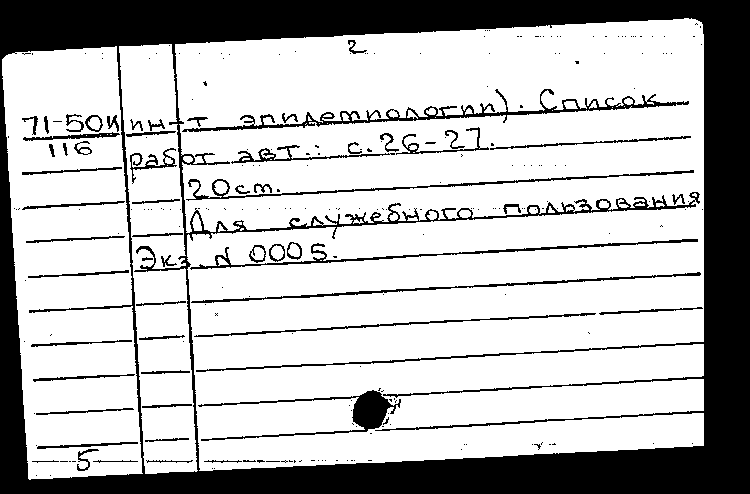 2
71-50К ин-т эпидемиологии). Список
116 работ авт.: с.26-27.
20см.
Для служебного пользования
Экз. N 0005.
5